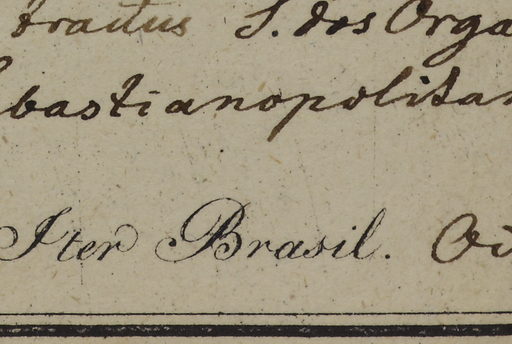 tractus S. dos Orga
bastianopolitan
Iter Brasil. Oi